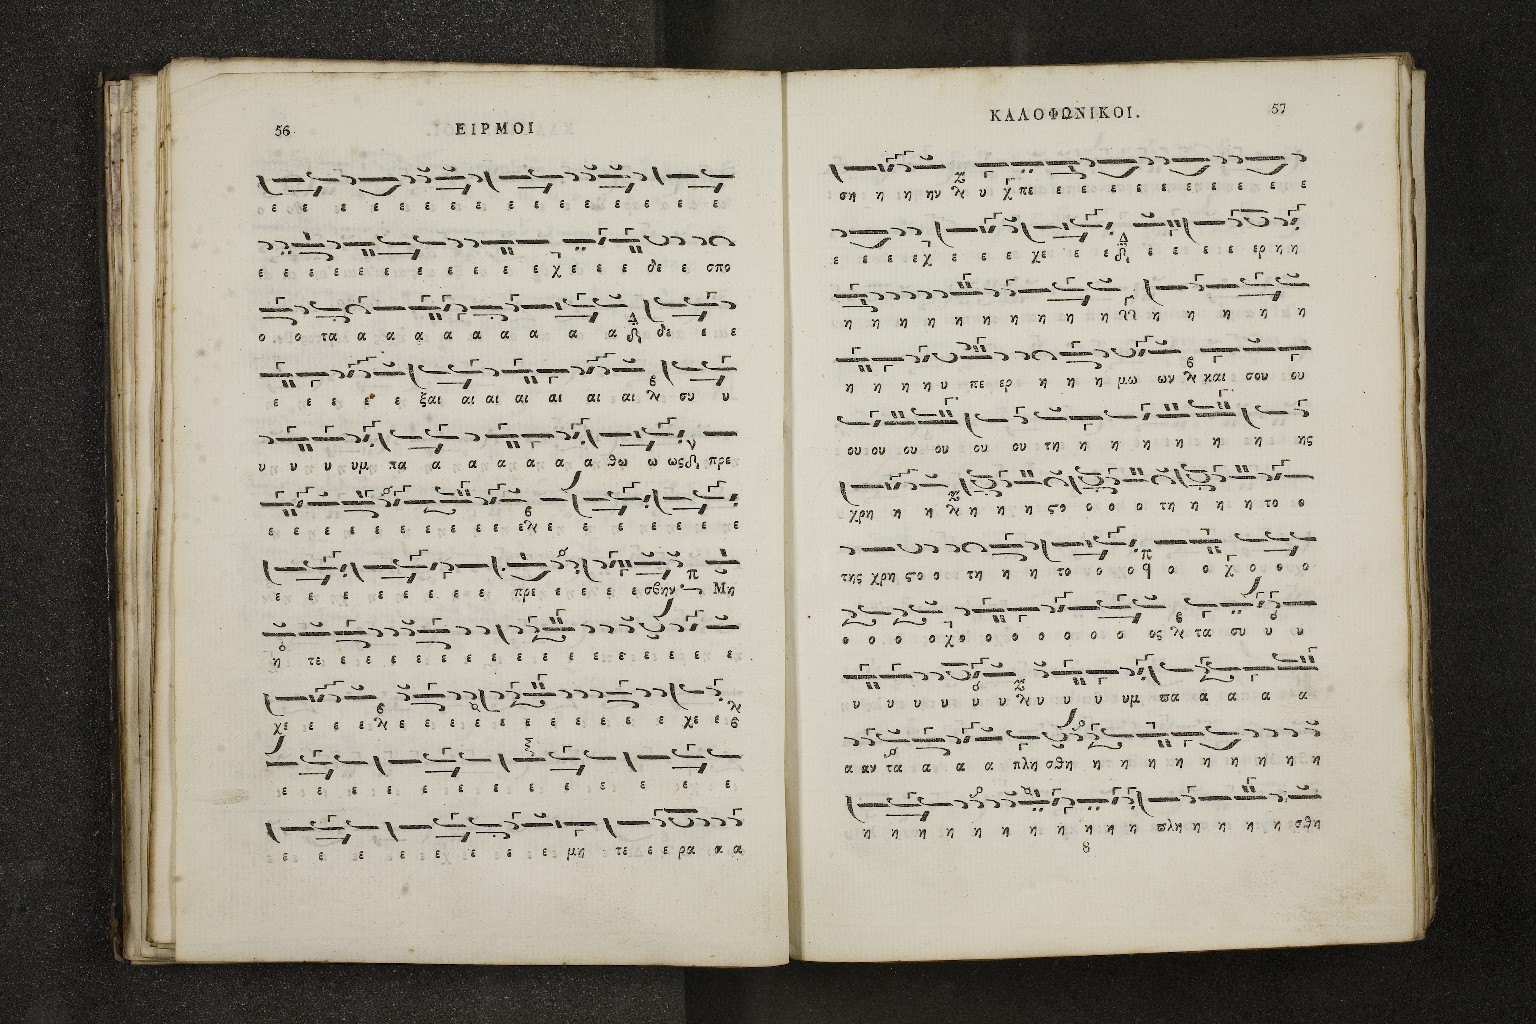 56
ΕΙΡΜΟΙ
ε ε ε ε ε ε ε ε ε ε ε ε ε ε ε ε ε
ε ε ε ε ε ε ε ε ε ε ε ε χ ε ε ε δε ε σπο
ο ο τα α α α α α α α α α Δ δε ε ε
ε ε ε ε ε ξαι αι αι αι αι αι αι β συ υ
υ υ υ υμ πα α α α α α α θω ω ως πρε
ε ε ε ε ε ε ε ε ε ε ε ε ε ε ε ε ε
ε ε ε ε ε ε ε ε πρε ε ε ε ε σβην π Μη
η τε ε ε ε ε ε ε ε ε ε ε ε ε ε ε ε
χε ε ε ε β ε ε ε ε ε ε ε ε ε ε ε χε ε β
ε ε ε ε ε ε ε ε ε ε ε ε
ε ε ε ε ε ε ε ε ε μη τε ε ε ρα α α
ΚΑΛΟΦΩΝΙΚΟΙ.
57
ση η η ην υ χ πε ε ε ε ε ε ε ε ε ε ε ε
ε ε ε ε χ ε ε ε χε ε ε Δ ε ε ε ε ερ η η
η η η η η η η η η η η η η η η
η η η η υ πε ερ η η η μω ων β και σου ου
ου ου ου ου ου ου τη η η η η η η η ης
χρη η η η η η ςο ο ο ο τη η η η το ο
της χρη ςο ο τη η η το ο ο π ο ο χ ο ο ο
ο ο ο ο χο ο ο ο ο ο ο ος β τα συ υ υ
υ υ υ υ υ υ υ υ υ υμ πα α α α α
α αν τα α α α πλη σθη η η η η η η η η η
η η η η η η η η η η πλη η η η η σθη
8